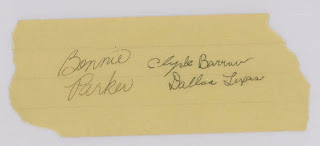 Bonnie
Parker
Clyde Barrow
Dallas Texas